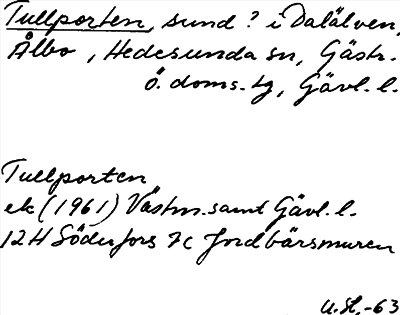 Tullporten, sund? i Dalälven,
Ålbo, Hedesunda sn, Gästr.
ö. doms.tg, Gävl. l.
Tullporten
ek (1961) Västm. samt Gävl. l.
12H Söderfors 7c Jordbärsmuren
U.St.-63